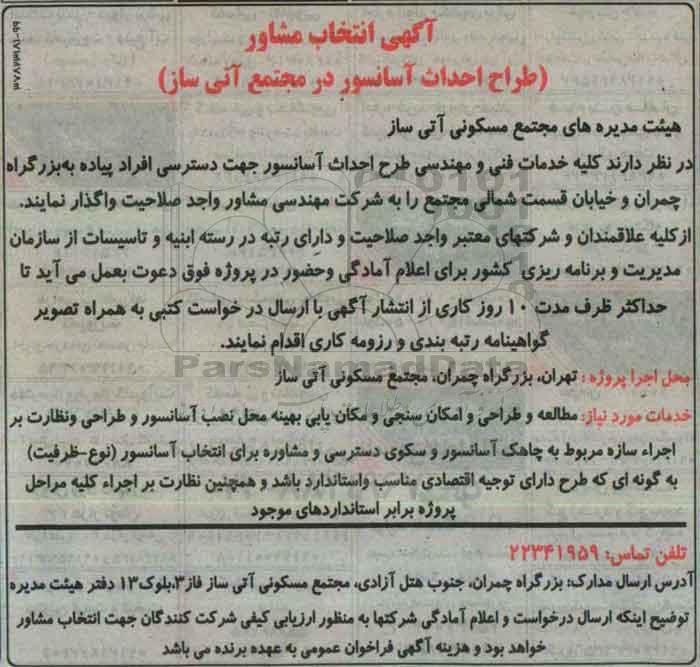 آگهی انتخاب مشاور
(طراح احداث آسانسور در مجتمع آتی ساز)
هیئت مدیره های مجتمع مسکونی آتی ساز
در نظر دارند کلیه خدمات فنی و مهندسی طرح احداث آسانسور جهت دسترسی افراد پیاده به‌بزرگراه
چمران و خیابان قسمت شمالی مجتمع را به شرکت مهندسی مشاور واجد صلاحیت واگذار نمایند.
از کلیه علاقمندان و شرکتهای معتبر واجد صلاحیت و دارای رتبه در رسته ابنیه و تاسیسات از سازمان
مدیریت و برنامه ریزی کشور برای اعلام آمادگی وحضور در پروژه فوق دعوت بعمل می آید تا
حداکثر ظرف مدت ۱۰ روز کاری از انتشار آگهی با ارسال در خواست کتبی به همراه تصویر
گواهینامه رتبه بندی و رزومه کاری اقدام نمایند.
ParsNamadData
محل اجرا پروژه : تهران، بزرگراه چمران، مجتمع مسکونی آتی ساز
خدمات مورد نیاز: مطالعه و طراحی و امکان سنجی و مکان یابی بهینه محل نصب آسانسور و طراحی ونظارت بر
اجراء سازه مربوط به چاهک آسانسور و سکوی دسترسی و مشاوره برای انتخاب آسانسور (نوع-ظرفیت)
به گونه ای که طرح دارای توجیه اقتصادی مناسب واستاندارد باشد و همچنین نظارت بر اجراء کلیه مراحل
پروژه برابر استانداردهای موجود
تلفن تماس: ۲۲۳۴۱۹۵۹
آدرس ارسال مدارک: بزرگراه چمران، جنوب هتل آزادی، مجتمع مسکونی آتی ساز فاز۳،بلوک۱۳ دفتر هیئت مدیره
توضیح اینکه ارسال درخواست و اعلام آمادگی شرکتها به منظور ارزیابی کیفی شرکت کنندگان جهت انتخاب مشاور
خواهد بود و هزینه آگهی فراخوان عمومی به عهده برنده می باشد